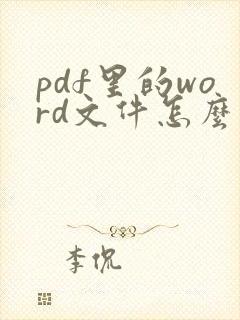 pdf里的wo
rd文件怎麽
李侃